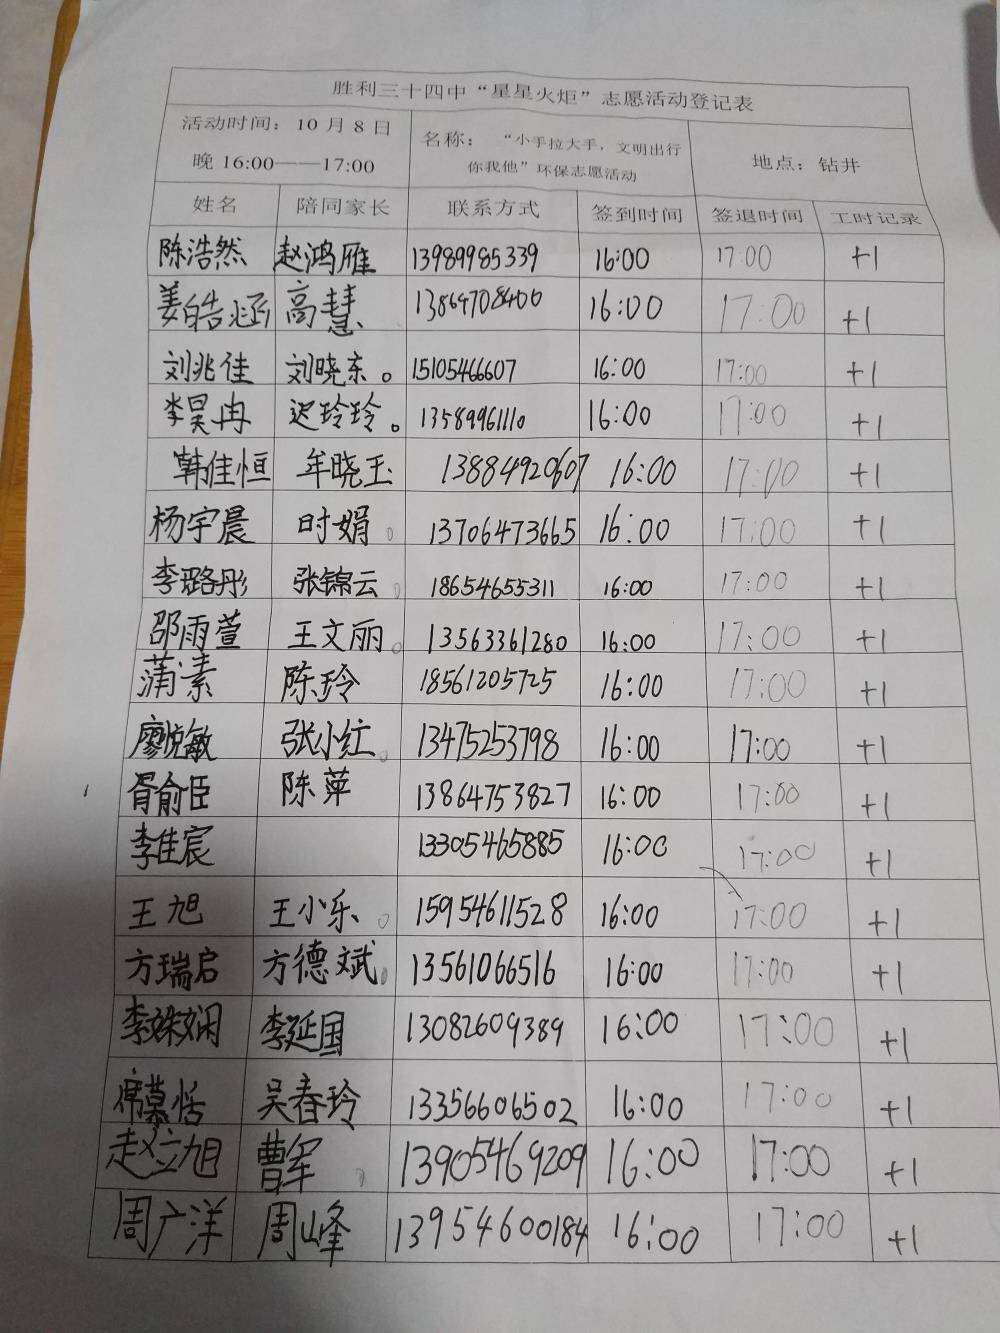 胜利三十四中“星星火炬”志愿活动登记表
活动时间：10月8日
晚16:00——17:00
名称： “小手拉大手，文明出行
你我他”环保志愿活动
地点：钻井
姓名 陪同家长 联系方式 签到时间 签退时间 工时记录
陈浩然 赵鸿雁 13989985339 16:00 17:00 +1
姜皓涵 高慧 13864708400 16:00 17:00 +1
刘兆佳 刘晓东。 15105466607 16:00 17:00 +1
李昊冉 迟玲玲。 13589961110 16:00 17:00 +1
韩佳恒 牟晓玉 13884920607 16:00 17:00 +1
杨宇晨 时娟。 13706473665 16:00 17:00 +1
李璐彤 张锦云。 18654655311 16:00 17:00 +1
邵雨萱 王文丽。 13563361280 16:00 17:00 +1
蒲素 陈玲 18561205725 16:00 17:00 +1
廖悦敏 张小红。 13475253798 16:00 17:00 +1
胥俞臣 陈萍 13864753827 16:00 17:00 +1
李佳宸 13305465885 16:00 17:00 +1
王旭 王小乐。 15954611528 16:00 17:00 +1
方瑞启 方德斌。 13561066516 16:00 17:00 +1
李姝娴 李延国 13082609389 16:00 17:00 +1
席慕恬 吴春玲 13356606502 16:00 17:00 +1
赵立旭 曹军。 13905469209 16:00 17:00 +1
周广洋 周峰 13954600184 16:00 17:00 +1